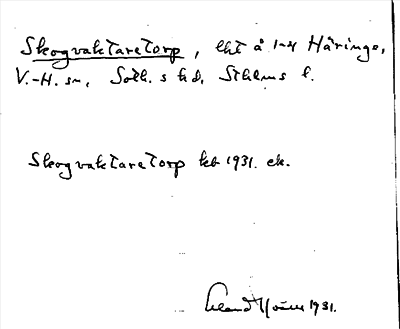 Skogvaktaretorp, lht å 1-4 Häringe,
V.-H. sn, Soth. s hd, Sthlms l.
Skogvaktaretorp kb 1931. ek.
1931.